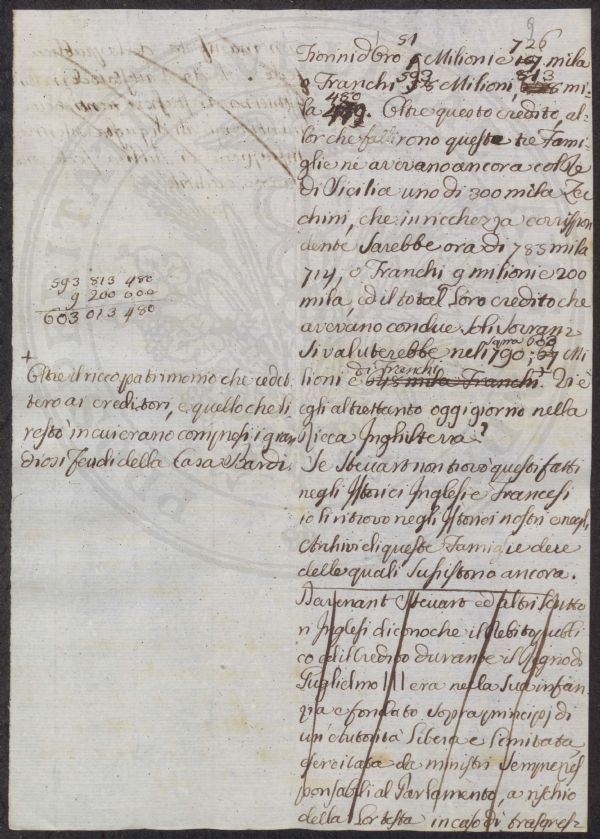 9
51 726
Fiorini d'Oro Milioni e mila
593 813
o Franchi Milioni, mi-
480
la. Oltre questo credito, al-
lor che fallirono queste tre Fami-
glie ne avevano ancora col Re
di Sicilia uno di 300 mila Zec-
chini, che in ricchezza corrispon
dente sarebbe ora di 785 mila
714, o Franchi 9 milioni e 200
mila, ed il total loro credito che
avevano con due soli Sovrani
si valuterebbe nel 1790; Mi-
lioni e di franchi. Vi è
egli altrettanto oggi giorno nella
Ricca Inghilterra?
Se Steuart non trovò questi fatti
negli Istorici Inglesi e Francesi
io li ritrovo negli Istorici nostri e negli
Archivi di queste Famiglie due
delle quali sussistono ancora.
Davenant Steuart ed altri Scritto
ri Inglesi dicono che il Debito pubbli
co ed il Credito durante il Regno di
Guglielmo III era nella sua infan
zia e fondato sopra principj di
un'Autorità libera e limitata
esercitata da ministri sempre res
ponsabili al Parlamento, a rischio
della lor testa in caso di trasgres-
593 813 480
9 200 000
603 013 480
+
Oltre il ricco patrimonio che cedet
tero ai creditori, e quello che li
restò in cui erano compresi i gran
diosi Feudi della Casa Bardi.